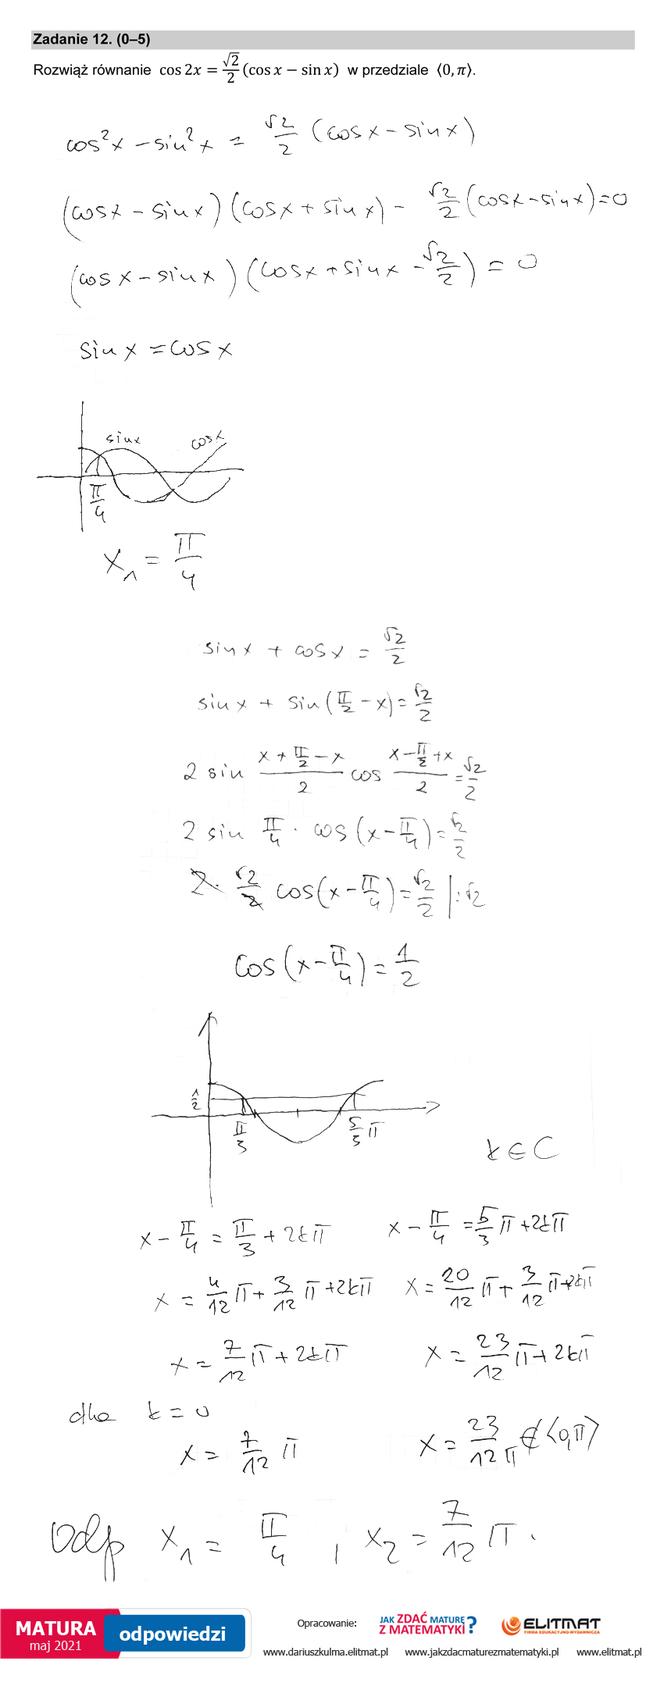 Zadanie 12. (0–5)
Rozwiąż równanie cos 2x = √2/2 (cos x − sin x) w przedziale ⟨0, π⟩.
cos²x − sin²x = √2/2 (cosx − sinx)
(cosx − sinx)(cosx + sinx) − √2/2 (cosx − sinx) = 0
(cosx − sinx)(cosx + sinx − √2/2) = 0
sinx = cosx
sinx cosx
π/4
x₁ = π/4
sinx + cosx = √2/2
sinx + sin(π/2 − x) = √2/2
2 sin (x + π/2 − x)/2 cos (x − π/2 + x)/2 = √2/2
2 sin π/4 · cos(x − π/4) = √2/2
2 · √2/2 cos(x − π/4) = √2/2 | : √2
cos(x − π/4) = 1/2
1/2
π/3 5/3 π
k ∈ C
x − π/4 = π/3 + 2kπ x − π/4 = 5/3 π + 2kπ
x = 4/12 π + 3/12 π + 2kπ x = 20/12 π + 3/12 π + 2kπ
x = 7/12 π + 2kπ x = 23/12 π + 2kπ
dla k = 0
x = 7/12 π x = 23/12 π ∉ ⟨0,π⟩
odp x₁ = π/4 , x₂ = 7/12 π.
MATURA
maj 2021
odpowiedzi
Opracowanie:
JAK ZDAĆ MATURĘ
Z MATEMATYKI?
ELITMAT
FIRMA EDUKACYJNO-WYDAWNICZA
www.dariuszkulma.elitmat.pl www.jakzdacmaturezmatematyki.pl www.elitmat.pl